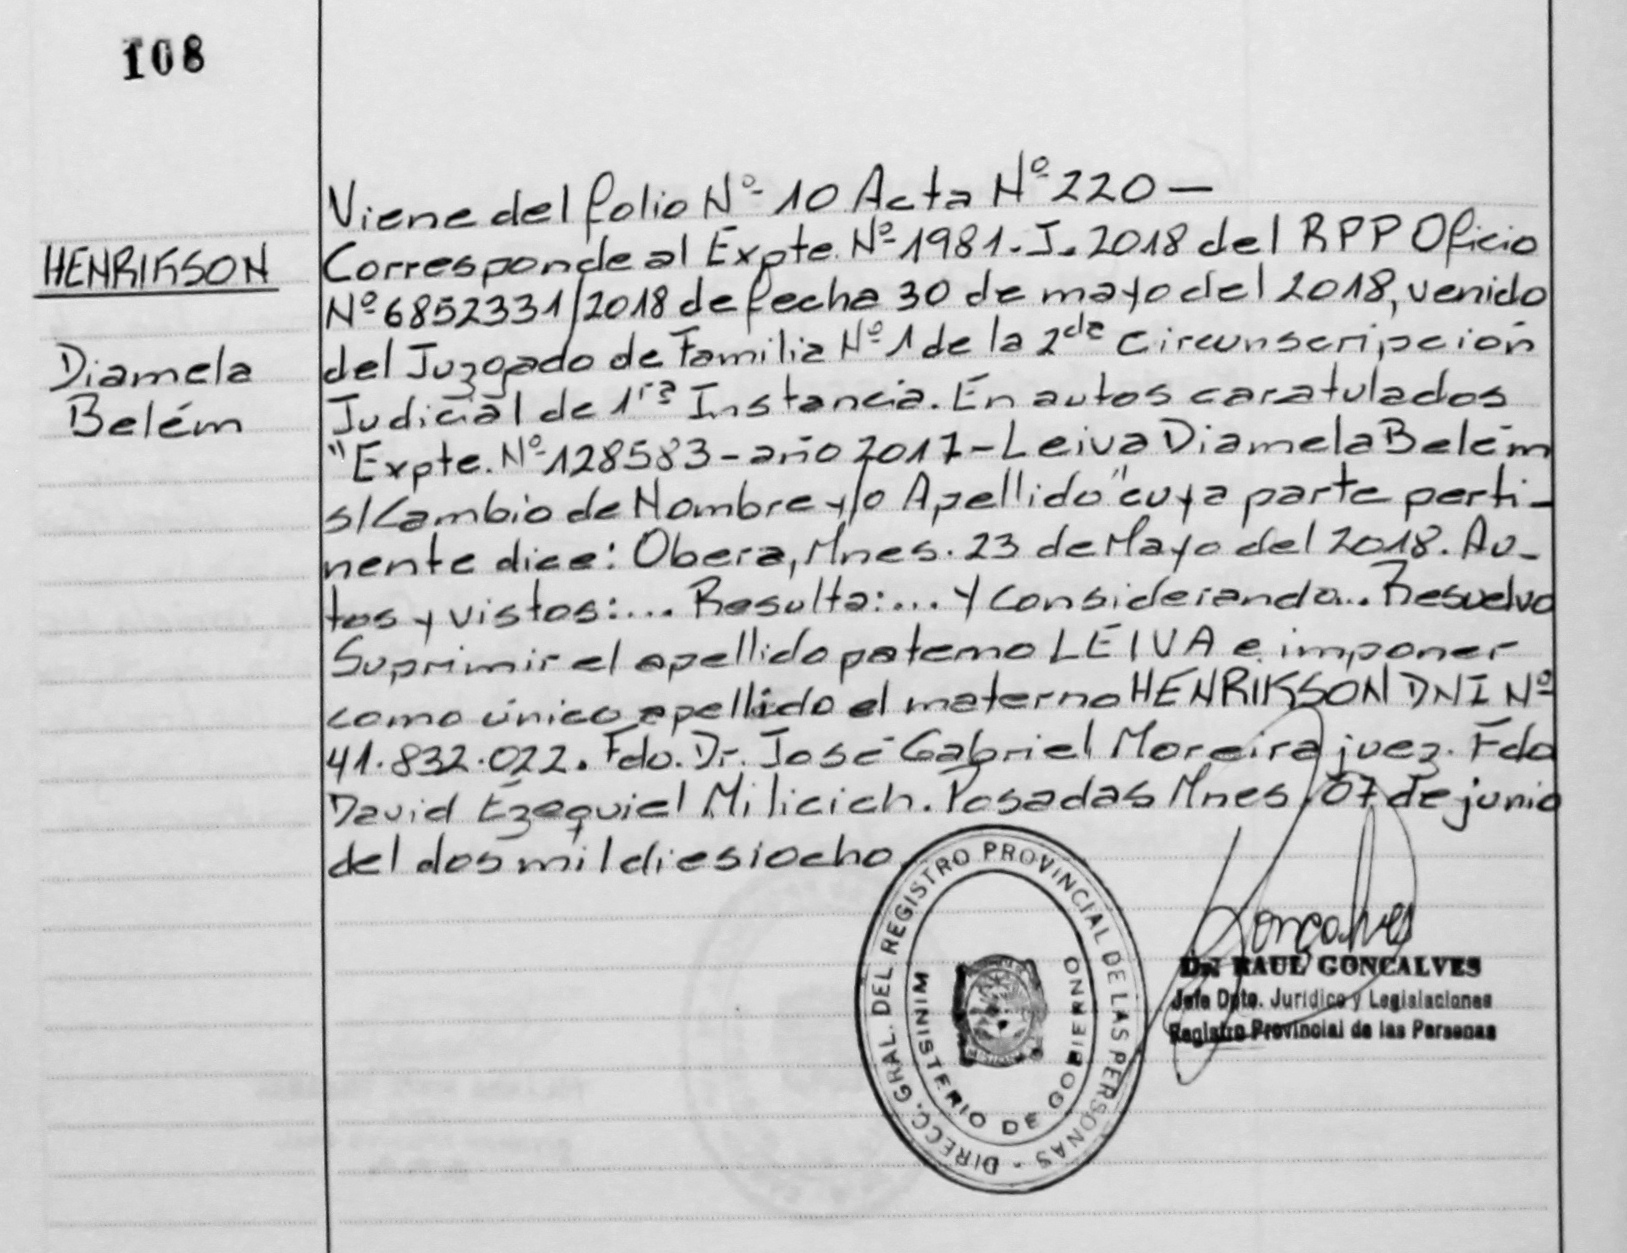 108
HENRIKSON
Diamela
Belém
Viene del folio Nº 10 Acta Nº 220 —
Corresponde al Expte. Nº 1981-J-2018 del RPP Oficio
Nº 6852331/2018 de fecha 30 de mayo del 2018, venido
del Juzgado de Familia Nº 1 de la 2da Circunscripción
Judicial de 1ra Instancia. En autos caratulados
"Expte. Nº 128583 - año 2017 - Leiva Diamela Belém
s/Cambio de Nombre y/o Apellido" cuya parte perti-
nente dice: Obera, Mnes. 23 de Mayo del 2018. Au-
tos y vistos:... Resulta:... Y Considerando... Resuelvo
Suprimir el apellido paterno LEIVA e imponer
como único apellido el materno HENRIKSON DNI Nº
41.832.022. Fdo. Dr. José Gabriel Moreira juez. Fdo
David Ezequiel Milicich. Posadas Mnes. 07 de junio
del dos mil diesiocho.
DIRECC. GRAL. DEL REGISTRO PROVINCIAL DE LAS PERSONAS -
MINISTERIO DE GOBIERNO
Gonçalves
Dr. RAUL GONCALVES
Jefe Dpto. Jurídico y Legislaciones
Registro Provincial de las Personas